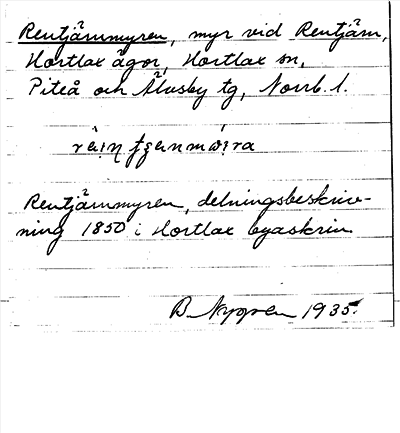 Rentjärnmyren, myr vid Rentjärn,
Hortlax ägor, Hortlax sn,
Piteå och Älvsby tg, Norrb. l.
Rentjärnmyren, delningsbeskriv-
ning 1850 i Hortlax byaskrin
B. Nygren 1935.